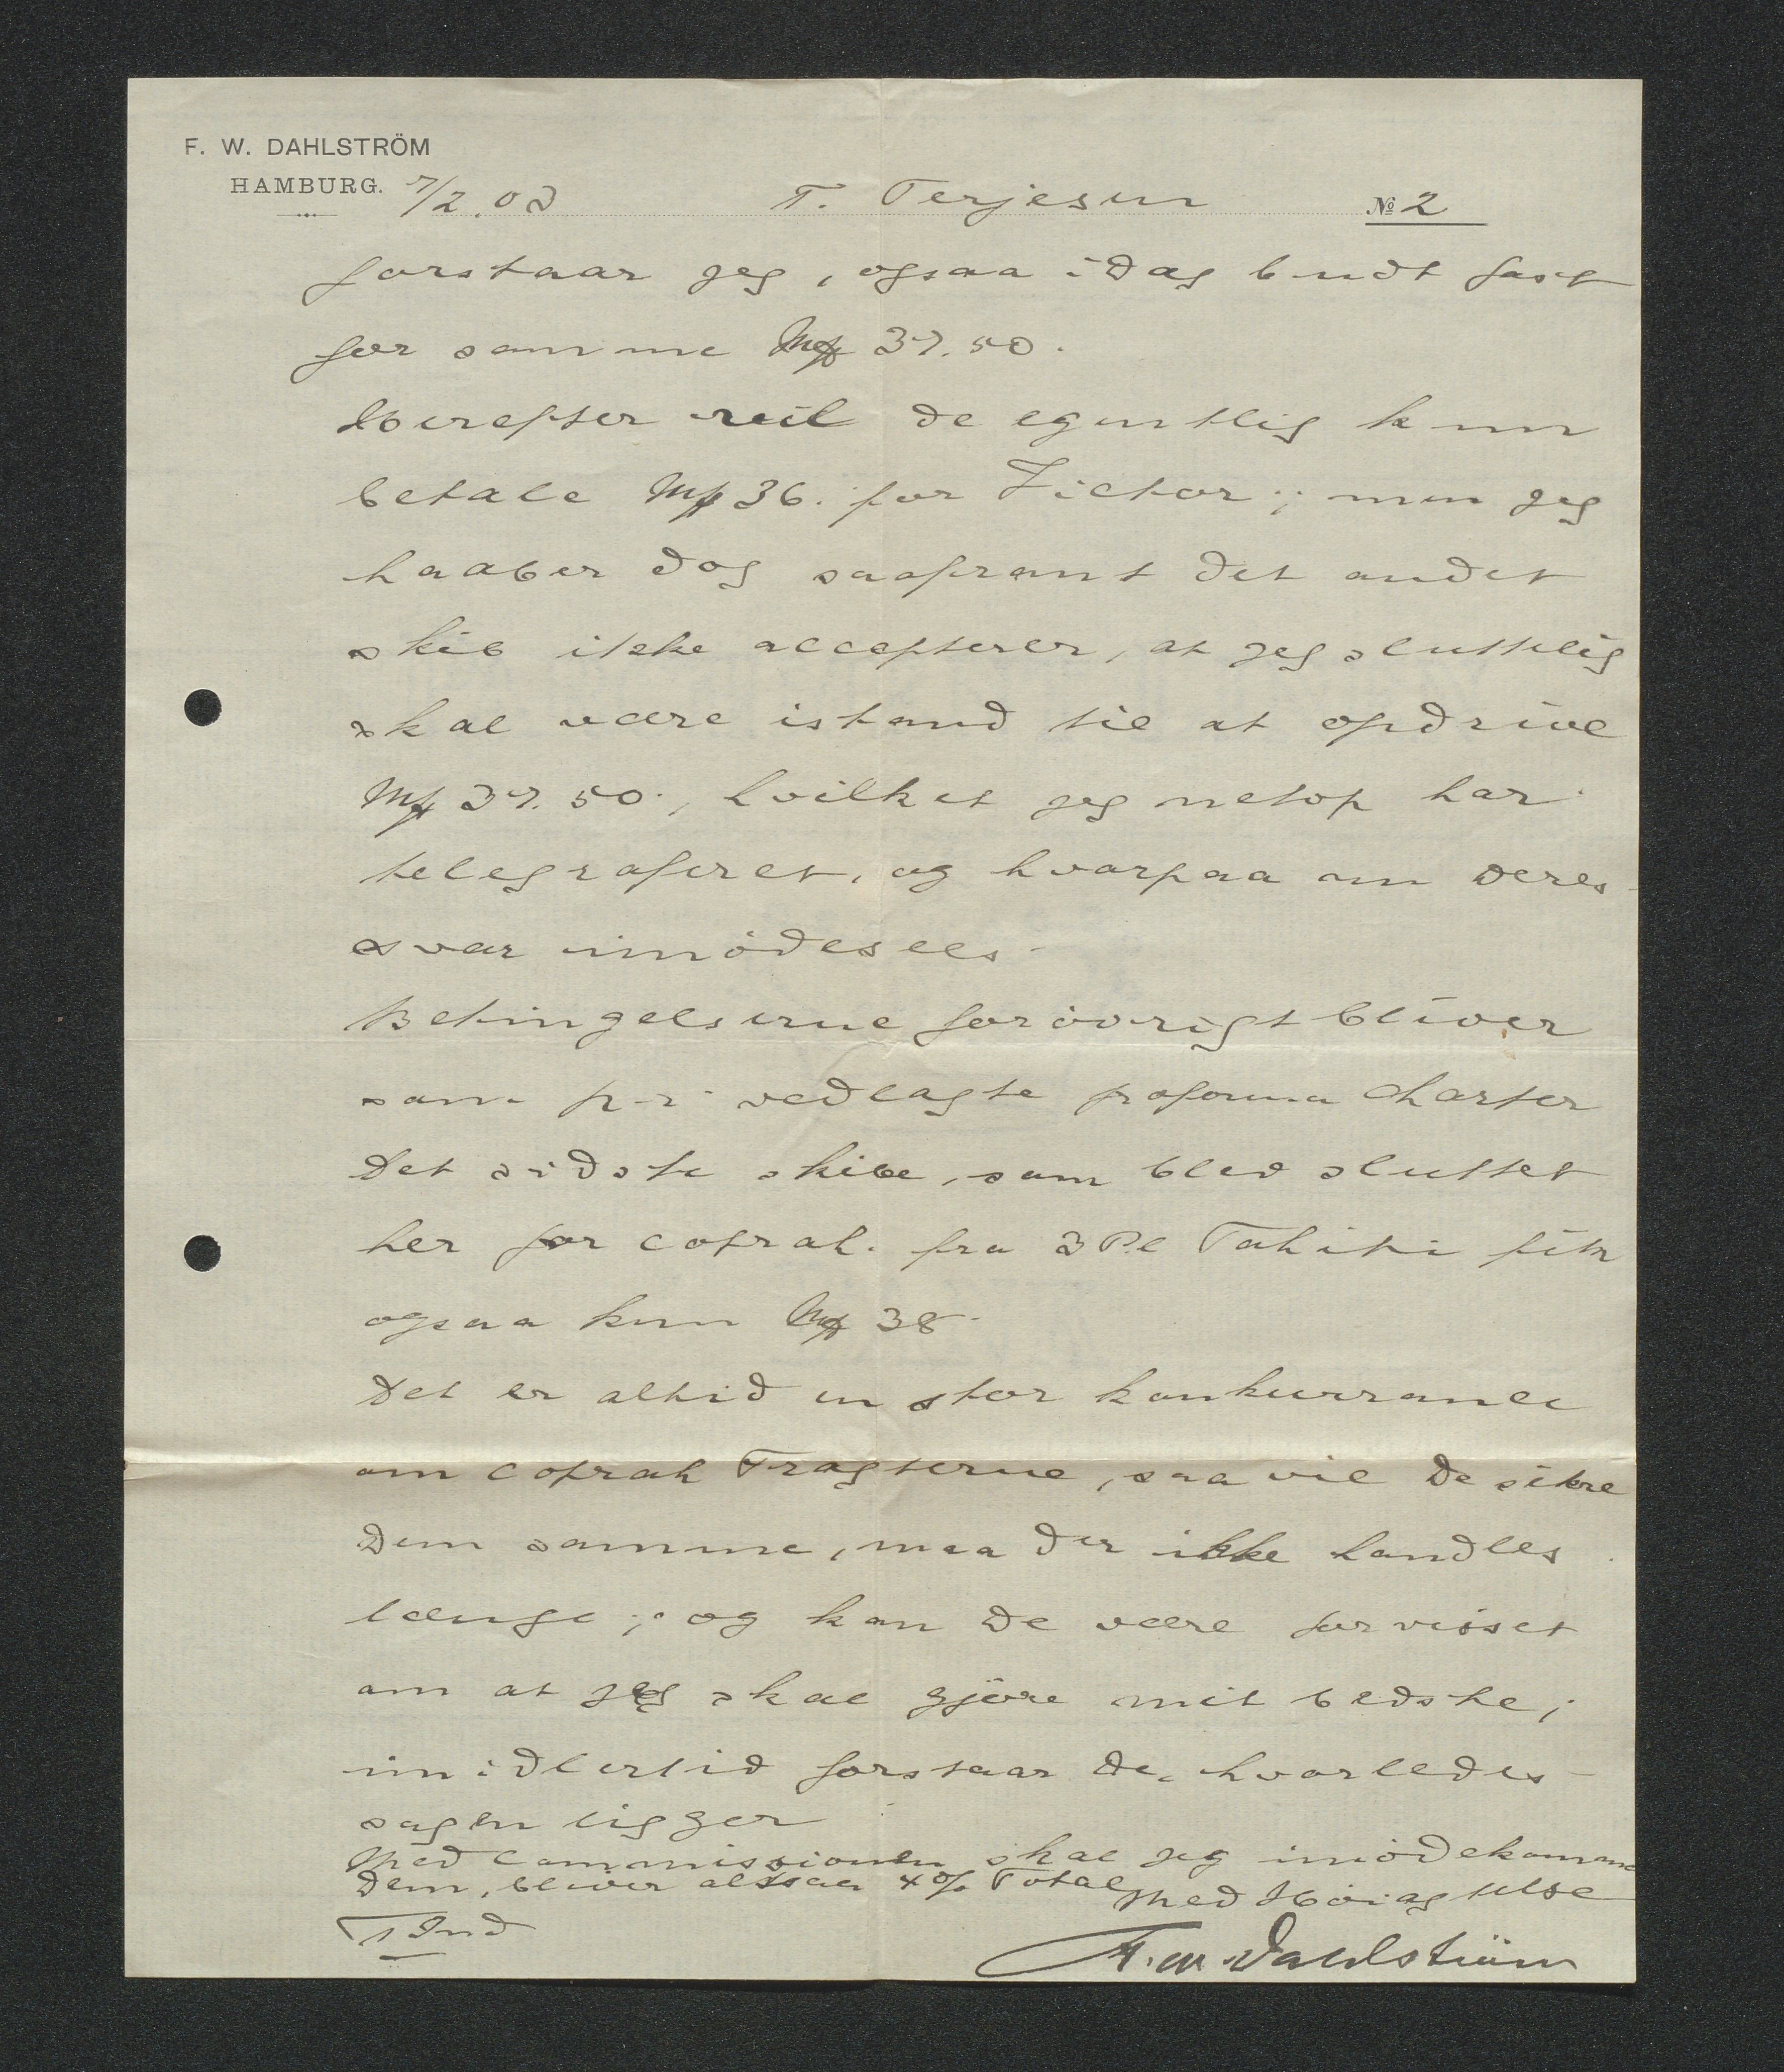 F. W. DAHLSTRÖM
HAMBURG. 7/2.03 T. Terjesen № 2
forstaar jeg, ogsaa idag budt fast
for samme Mk 37.50.
Herefter vil de egentlig kun
betale Mk 36. for Victor; men jeg
haaber dog saafremt det andet
skib ikke accepterer, at jeg sluttelig
skal være istand til at opdrive
Mk 37.50., hvilket jeg netop har
telegraferet, og hvorpaa om Deres
svar imødesees.
Betingelserne forøvrigt bliver
som pr. vedlagte proforma Charter
Det sidste skibe, som blev sluttet
her for coprah. fra Tahiti fik
ogsaa kun Mk 38.
Det er altid en stor konkurrance
om coprah Fragterne, saa vil De sikre
Dem samme, maa der ikke handles
længe; og kan De være forvisset
om at jeg skal gjøre mit bedste;
imidlertid forstaar De, hvorledes
sagen ligger
Med Commissionen skal jeg imødekomme
Dem, bliver altsaa 4% Total
Med Høiagtelse
1 Ind
F. W. Dahlström